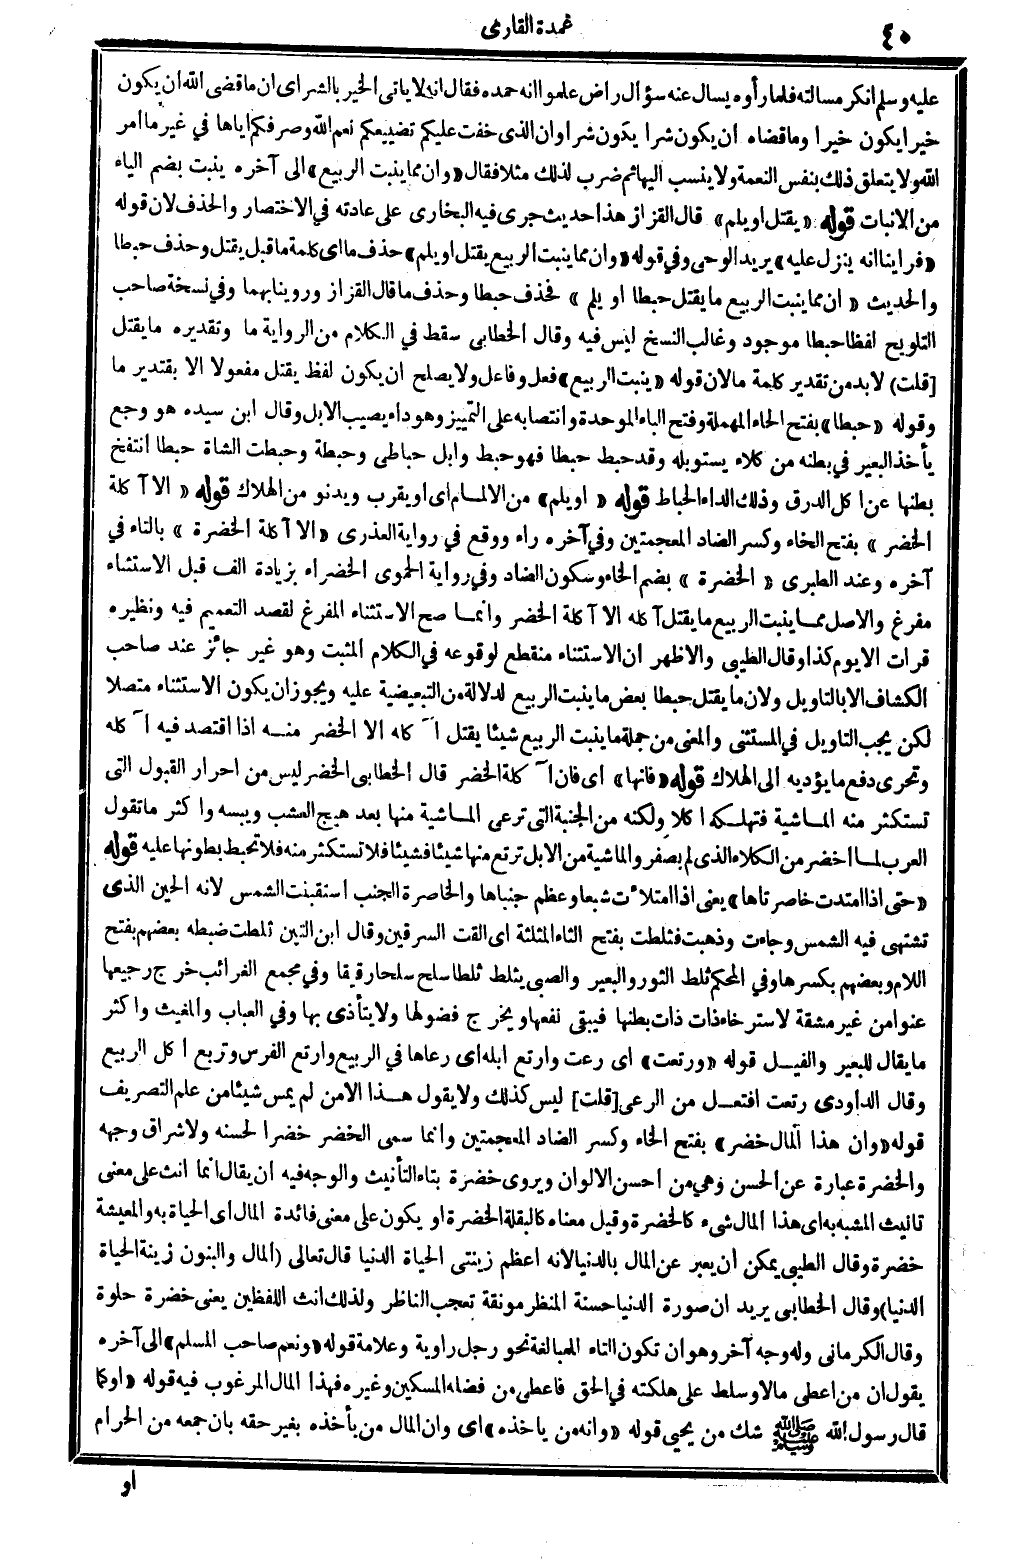 ٤٠
عمدة القارى
عليه وسلم انكر مسالته فلما رأوه يسال عنه سؤال راض علموا انه حمده فقال انه لا ياتى الخير بالشر اى ان ما قضى الله ان يكون
خيرا يكون خيرا وما قضاه ان يكون شرا يكون شرا وان الذى خفت عليكم تضييعكم نعم الله وصرفكم اياها في غير ما امر
الله ولا يتعلق ذلك بنفس النعمة ولا ينسب اليها ثم ضرب لذلك مثلا فقال «وان مما ينبت الربيع» الى آخره ينبت بضم الياء
من الانبات قوله «يقتل او يلم» قال القزاز هذا حديث جرى فيه البخارى على عادته في الاختصار والحذف لان قوله
«فراينا انه ينزل عليه» يريد الوحى وفي قوله «وان مما ينبت الربيع يقتل او يلم» حذف ما اى كلمة ما قبل يقتل وحذف حبطا
والحديث «ان مما ينبت الربيع ما يقتل حبطا او يلم» فحذف حبطا وحذف ما قال القزاز وروينا بهما وفي نسخة صاحب
التلويح لفظا حبطا موجود وغالب النسخ ليس فيه وقال الخطابى سقط في الكلام من الرواية ما وتقديره ما يقتل
[قلت] لا بد من تقدير كلمة ما لان قوله «ينبت الربيع» فعل وفاعل ولا يصلح ان يكون لفظ يقتل مفعولا الا بتقدير ما
وقوله «حبطا» بفتح الحاء المهملة وفتح الباء الموحدة وانتصابه على التمييز وهو داء يصيب الابل وقال ابن سيده هو وجع
يأخذ البعير في بطنه من كلاء يستوبله وقد حبط حبطا فهو حبط وابل حباطى وحبطة وحبطت الشاة حبطا انتفخ
بطنها عن اكل الدرق وذلك الداء الحباط قوله «او يلم» من الالمام اى او يقرب ويدنو من الهلاك قوله «الا آكلة
الخضر» بفتح الخاء وكسر الضاد المعجمتين وفي آخره راء ووقع في رواية العذرى «الا آكلة الخضرة» بالتاء في
آخره وعند الطبرى «الخضرة» بضم الخاء وسكون الضاد وفي رواية الحموى الخضراء بزيادة الف قبل الاستثناء
مفرغ والاصل مما ينبت الربيع ما يقتل آكله الا آكلة الخضر وانما صح الاستثناء المفرغ لقصد التعميم فيه ونظيره
قرات الا يوم كذا وقال الطيبى والاظهر ان الاستثناء منقطع لوقوعه في الكلام المثبت وهو غير جائز عند صاحب
الكشاف الا بالتاويل ولان ما يقتل حبطا بعض ما ينبت الربيع لدلالة من التبعيضية عليه ويجوز ان يكون الاستثناء متصلا
لكن يجب التاويل في المستثنى والمعنى من جملة ما ينبت الربيع شيئا يقتل آكله الا الخضر منه اذا اقتصد فيه آكله
وتحرى دفع ما يؤديه الى الهلاك قوله «فانها» اى فان آكلة الخضر قال الخطابى الخضر ليس من احرار البقول التى
تستكثر منه الماشية فتهلكه اكلا ولكنه من الجنبة التى ترعى الماشية منها بعد هيج العشب ويبسه واكثر ما تقول
العرب لما اخضر من الكلاء الذى لم يصفر والماشية من الابل ترتع منها شيئا فشيئا فلا تستكثر منه فلا تحبط بطونها عليه قوله
«حتى اذا امتدت خاصرتاها» يعنى اذا امتلأت شبعا وعظم جنباها والخاصرة الجنب استقبلت الشمس لانه الحين الذى
تشتهى فيه الشمس وجاءت وذهبت فثلطت بفتح الثاء المثلثة اى القت السرقين وقال ابن التين ثلطت ضبطه بعضهم بفتح
اللام وبعضهم بكسرها وفي المحكم ثلط الثور والبعير والصبى يثلط ثلطا سلح سلحا رقيقا وفي مجمع الغرائب خرج رجيعها
عنوا من غير مشقة لاسترخاء ذات بطنها فيبقى نفعها ويخرج فضولها ولا يتأذى بها وفي العباب والمغيث واكثر
ما يقال للبعير والفيل قوله «ورتعت» اى رعت وارتع ابله اى رعاها في الربيع وارتع الفرس وتربع اكل الربيع
وقال الداودى رتعت افتعل من الرعى [قلت] ليس كذلك ولا يقول هذا الا من لم يمس شيئا من علم التصريف
قوله «وان هذا المال خضر» بفتح الخاء وكسر الضاد المعجمتين وانما سمى الخضر خضرا لحسنه ولاشراق وجهه
والخضرة عبارة عن الحسن وهي من احسن الالوان ويروى خضرة بتاء التأنيث والوجه فيه ان يقال انما انث على معنى
تانيث المشبه به اى هذا المال شىء كالخضرة وقيل معناه كالبقلة الخضرة او يكون على معنى فائدة المال اى الحياة به والمعيشة
خضرة وقال الطيبى يمكن ان يعبر عن المال بالدنيا لانه اعظم زينتى الحياة الدنيا قال تعالى (المال والبنون زينة الحياة
الدنيا) وقال الخطابى يريد ان صورة الدنيا حسنة المنظر مونقة تعجب الناظر ولذلك انث اللفظين يعنى خضرة حلوة
وقال الكرمانى وله وجه آخر وهو ان تكون التاء للمبالغة نحو رجل راوية وعلامة قوله «ونعم صاحب المسلم» الى آخره
يقول ان من اعطى مالا وسلط على هلكته في الحق فاعطى من فضله المسكين وغيره فهذا المال المرغوب فيه قوله «او كما
قال رسول الله ﷺ شك من يحيى قوله «وانه من ياخذه» اى وان المال من يأخذه بغير حقه بان جمعه من الحرام
او